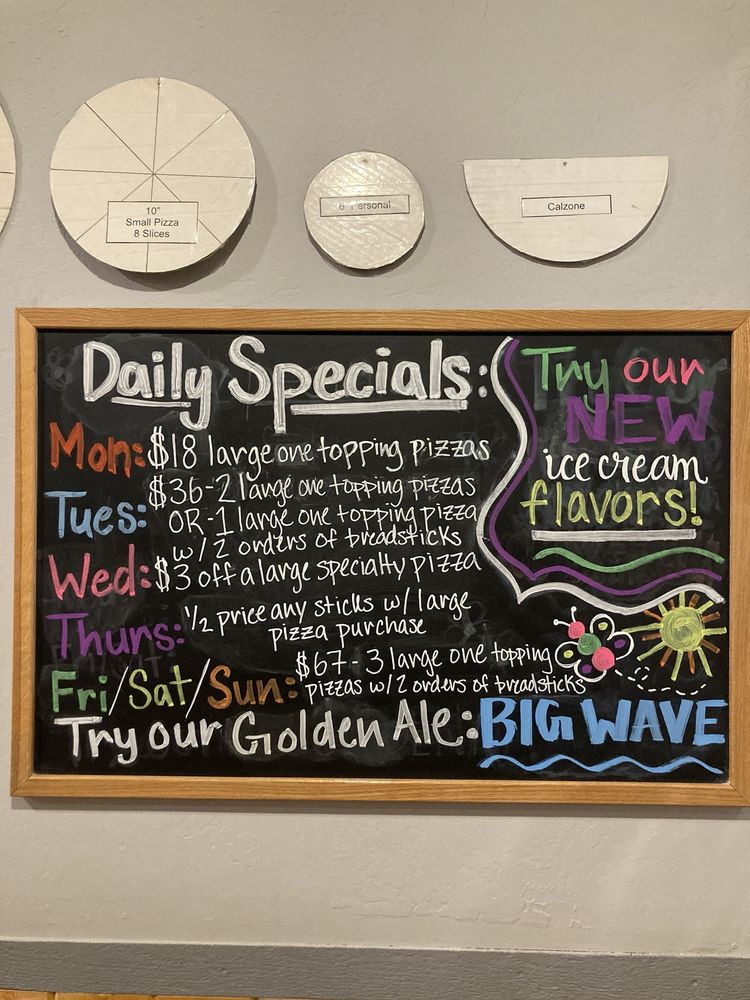 10"
Small Pizza
8 Slices
Personal
Calzone
Daily Specials:
Mon: $18 large one topping pizzas
Tues: $36-2 large one topping pizzas
OR-1 large one topping pizza
w/2 orders of breadsticks
Wed: $3 off a large specialty pizza
Thurs: 1/2 price any sticks w/ large
pizza purchase
Fri/Sat/Sun: $67-3 large one topping
pizzas w/2 orders of breadsticks
Try our Golden Ale: BIG WAVE
Try our
NEW
ice cream
flavors!